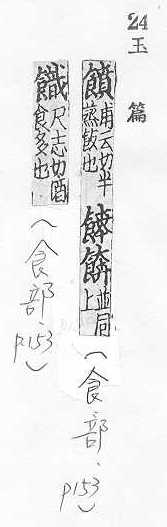 24
玉篇
饙甫云切半
蒸飯也
並同
上
(食部、p153)
尺志切酒
食多也
(食部、p153)